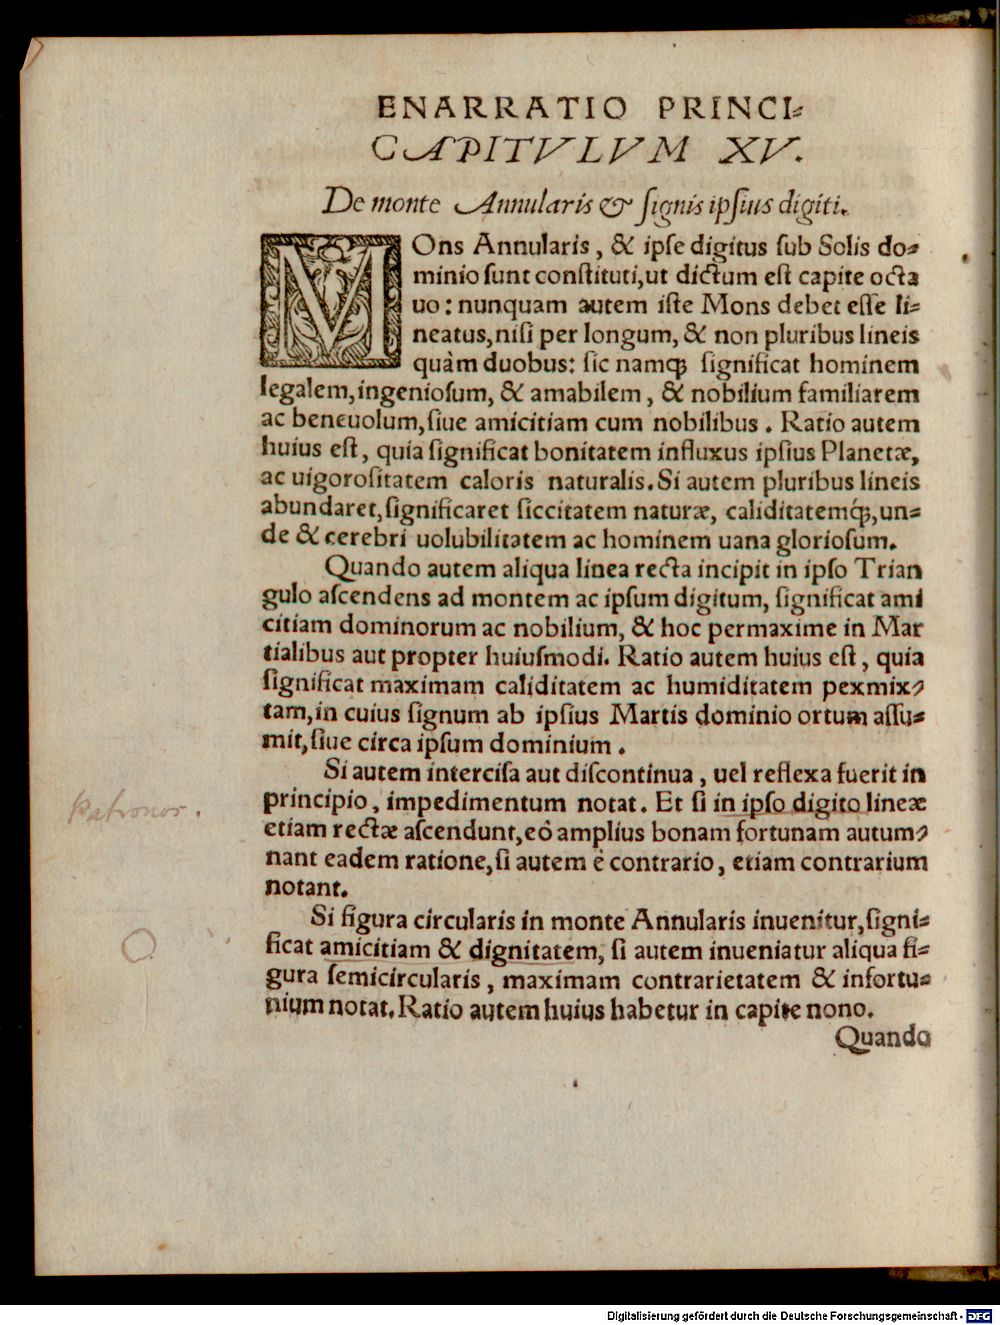 ENARRATIO PRINCI⸗
CAPITVLVM XV.
De monte Annularis & ſignis ipſius digiti.
MOns Annularis, & ipſe digitus ſub Solis do⸗
minio ſunt conſtituti, ut dictum eſt capite octa
uo: nunquam autem iſte Mons debet eſſe li⸗
neatus, niſi per longum, & non pluribus lineis
quàm duobus: ſic namqꝫ ſignificat hominem
legalem, ingenioſum, & amabilem, & nobilium familiarem
ac beneuolum, ſiue amicitiam cum nobilibus. Ratio autem
huius eſt, quia ſignificat bonitatem influxus ipſius Planetæ,
ac uigoroſitatem caloris naturalis. Si autem pluribus lineis
abundaret, ſignificaret ſiccitatem naturæ, caliditatemq́ꝫ, un⸗
de & cerebri uolubilitatem ac hominem uana glorioſum.
Quando autem aliqua linea recta incipit in ipſo Trian
gulo aſcendens ad montem ac ipſum digitum, ſignificat ami
citiam dominorum ac nobilium, & hoc permaxime in Mar
tialibus aut propter huiuſmodi. Ratio autem huius eſt, quia
ſignificat maximam caliditatem ac humiditatem pexmix⸗
tam, in cuius ſignum ab ipſius Martis dominio ortum aſſu⸗
mit, ſiue circa ipſum dominium.
Si autem interciſa aut diſcontinua, uel reflexa fuerit in
principio, impedimentum notat. Et ſi in ipſo digito lineæ
patronos.
etiam rectæ aſcendunt, eò amplius bonam fortunam autum⸗
nant eadem ratione, ſi autem è contrario, etiam contrarium
notant.
Si figura circularis in monte Annularis inuenitur, ſigni⸗
ficat amicitiam & dignitatem, ſi autem inueniatur aliqua fi⸗
gura ſemicircularis, maximam contrarietatem & infortu⸗
nium notat. Ratio autem huius habetur in capite nono.
Quando
Digitalisierung gefördert durch die Deutsche Forschungsgemeinschaft - DFG